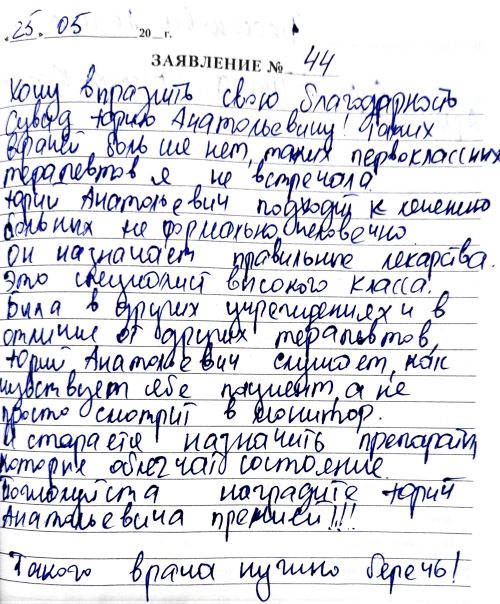 "25" 05 20 г.
ЗАЯВЛЕНИЕ № 44
Хочу вправить свою благодарность
Сувод Юрию Анатольевичу! Таких
врачей больше нет, таких первоклассных
терапевтов я не встречала
Юрий Анатольевич подходит к лечению
больных не формально, человечно.
Он назначает правильные лекарства.
Это специалист высокого класса.
Была в других учреждениях и в
отличие от других терапевтов,
Юрий Анатольевич слушает, как
чувствует себе пациент, а не
просто смотрит в монитор.
И старается назначить препараты
которые облегчат состояние.
Пожалуйста наградите Юрий
Анатольевича премией!!!
Такого врача нужно беречь!